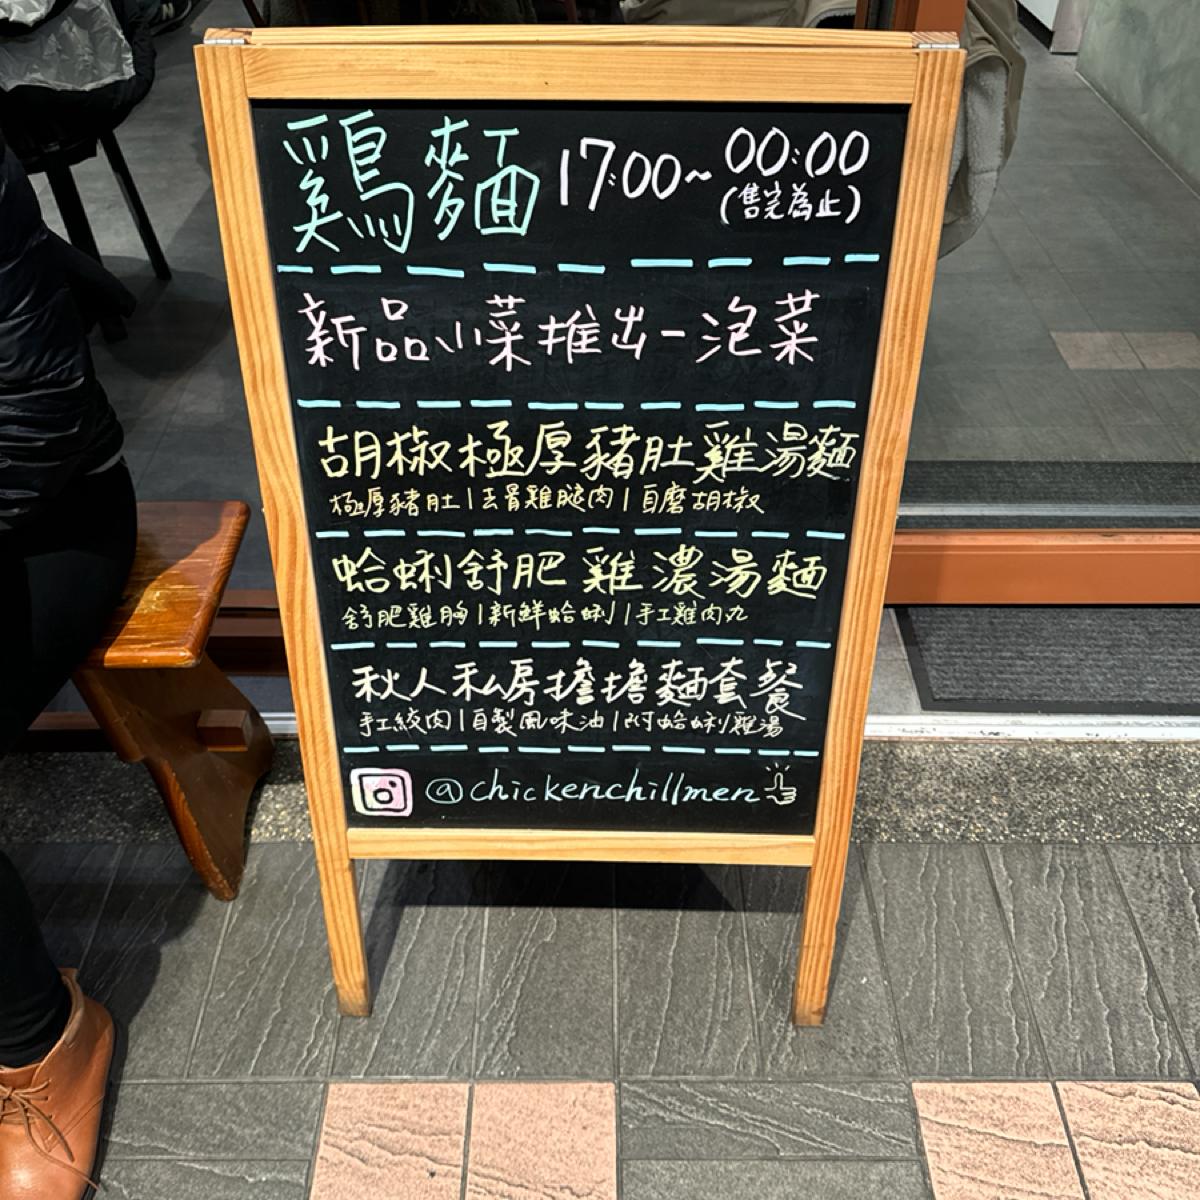 鶏麵 17:00~00:00
(售完為止)
新品小菜推出-泡菜
胡椒極厚豬肚雞湯麵
極厚豬肚|去骨雞腿肉|自磨胡椒
蛤蜊舒肥雞濃湯麵
舒肥雞胸|新鮮蛤蜊|手工雞肉丸
秋人私房擔擔麵套餐
手工絞肉|自製風味油|附蛤蜊雞湯
@chickenchillmen